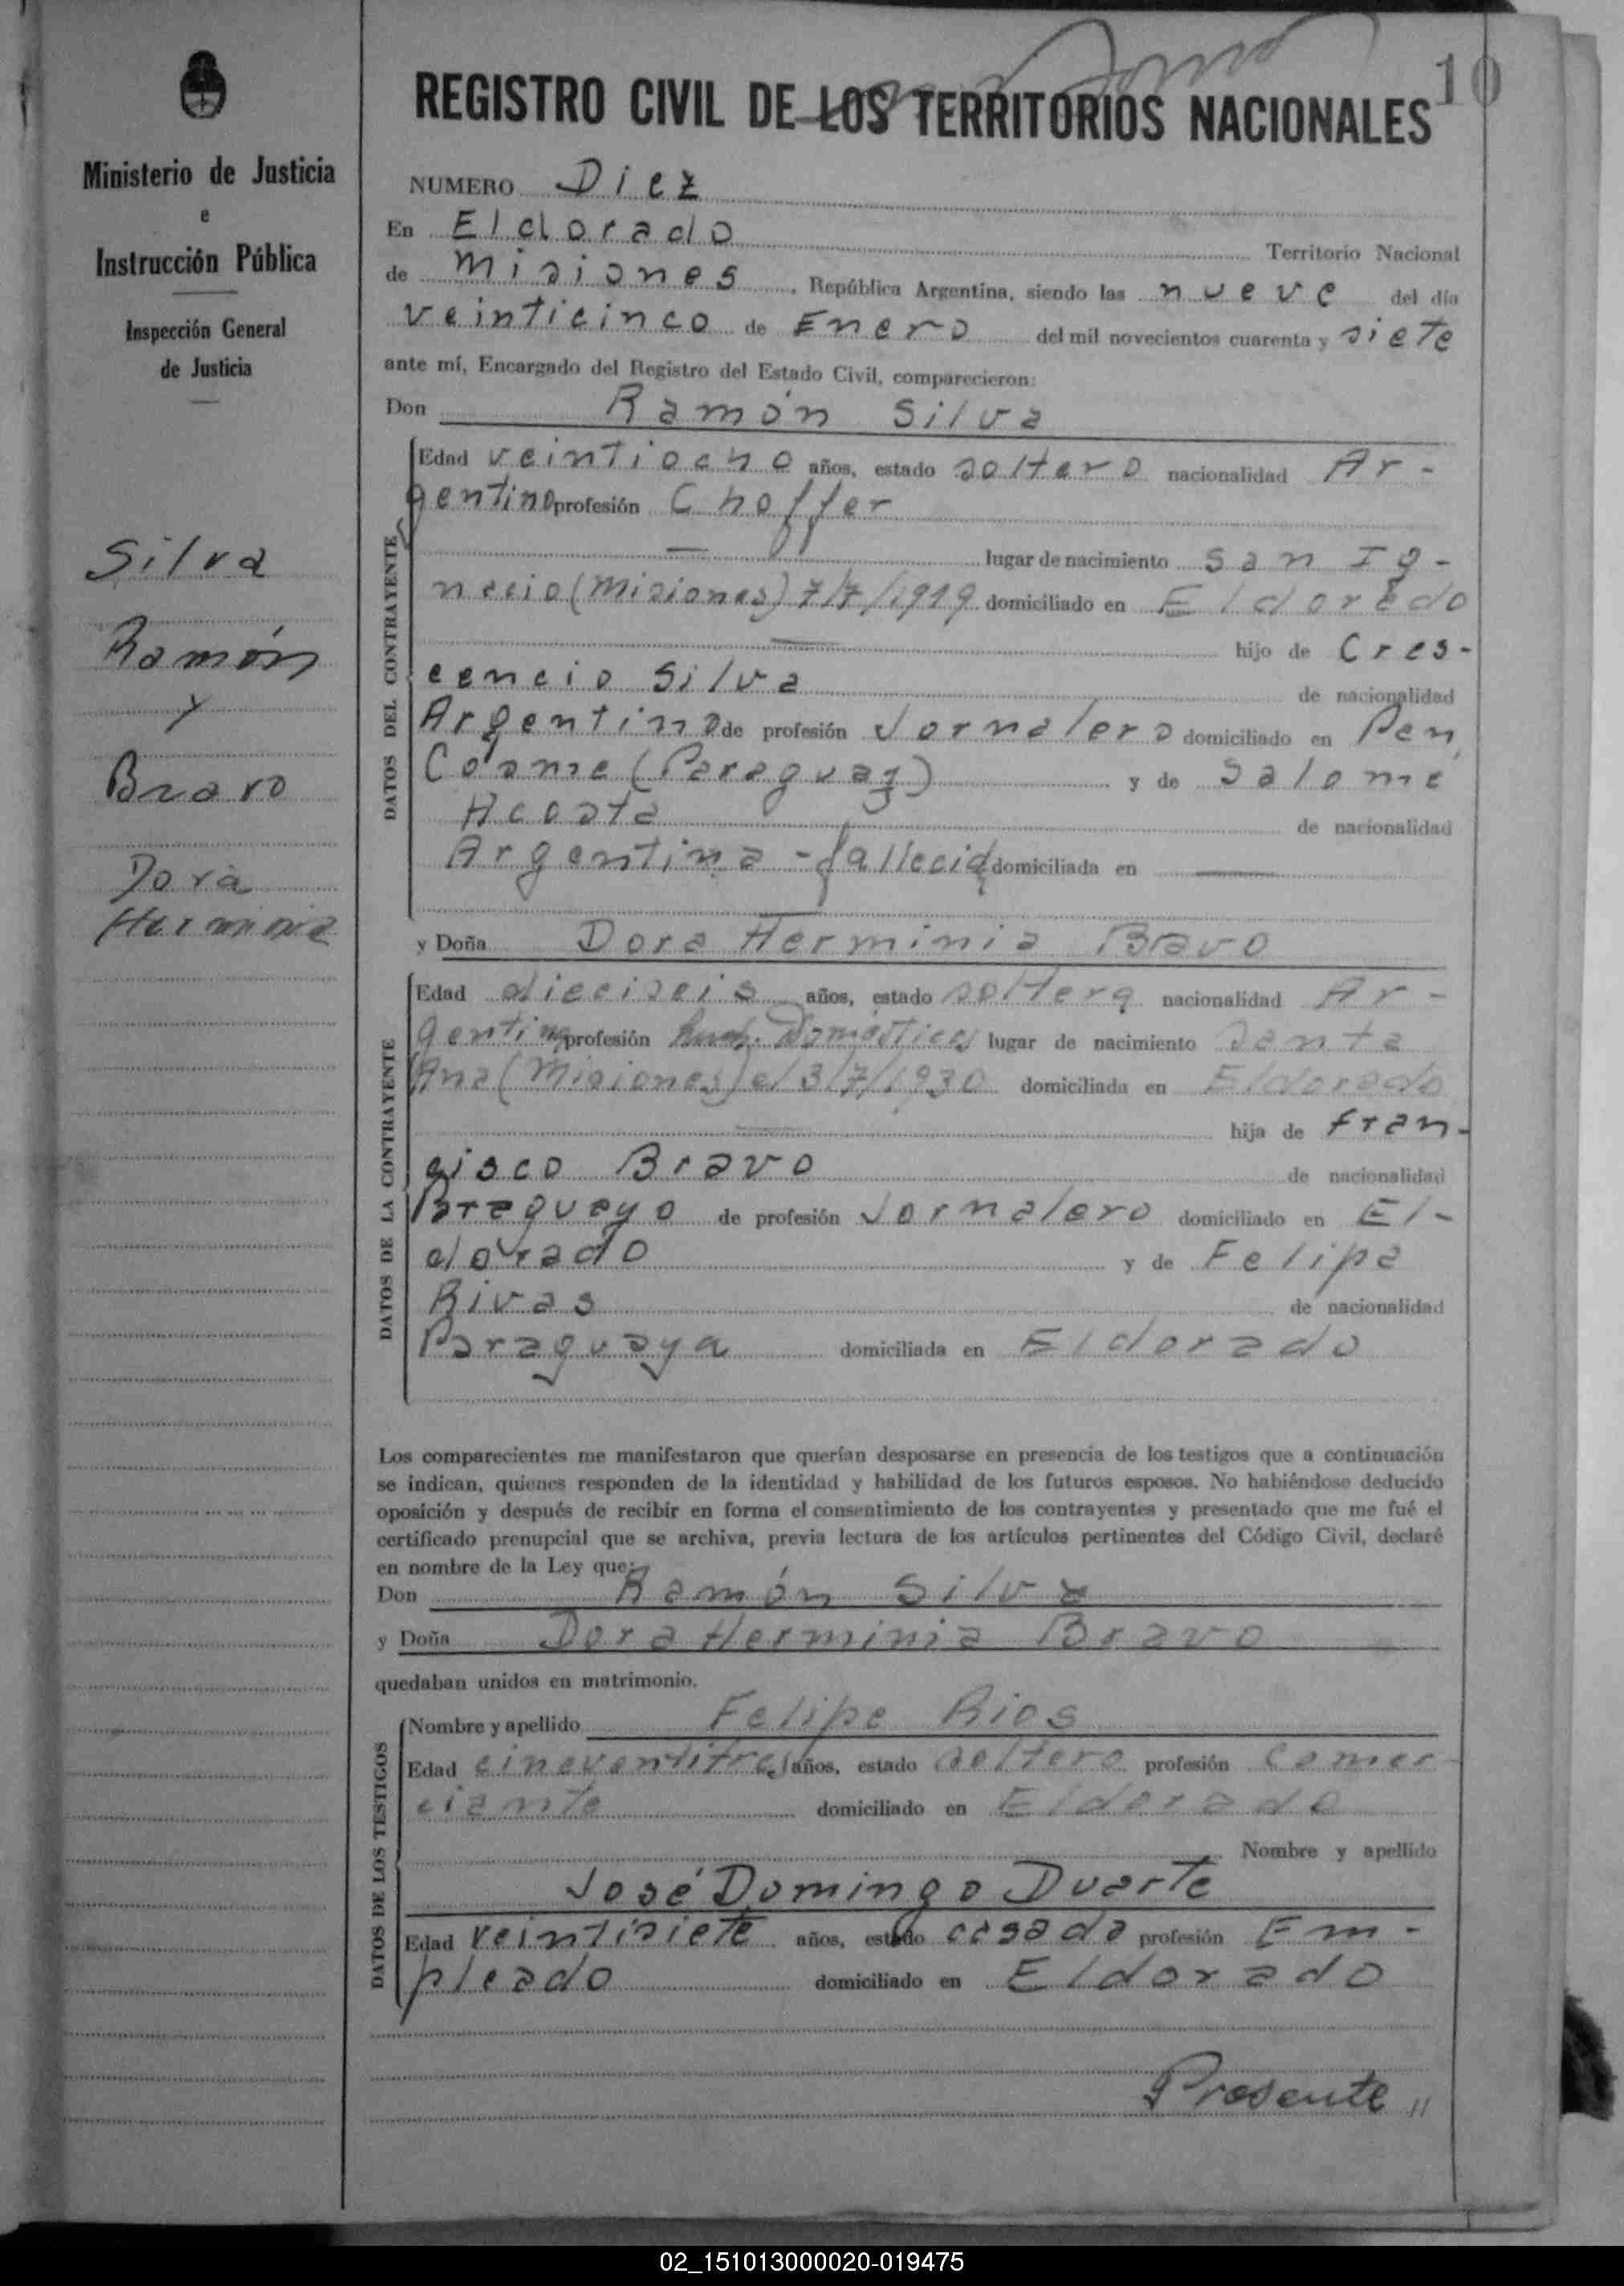 10
REGISTRO CIVIL DE LOS TERRITORIOS NACIONALES
Ministerio de Justicia
e
Instrucción Pública
Inspección General
de Justicia
Silva
Ramón
y
Bravo
Dora
Herminia
NUMERO Diez
En Eldorado Territorio Nacional
de Misiones, República Argentina, siendo las nueve del día
veinticinco de Enero del mil novecientos cuarenta y siete
ante mí, Encargado del Registro del Estado Civil, comparecieron:
Don Ramón Silva
DATOS DEL CONTRAYENTE
Edad veintiocho años, estado soltero nacionalidad Ar-
gentino profesión Choffer
lugar de nacimiento San Ig-
nacio (Misiones) 7/7/1919 domiciliado en Eldorado
hijo de Cres-
cencio Silva de nacionalidad
Argentino de profesión Jornalero domiciliado en
Cosme (Paraguay) y de Salomé
Acosta de nacionalidad
Argentina - fallecida domiciliada en
y Doña Dora Herminia Bravo
DATOS DE LA CONTRAYENTE
Edad dieciseis años, estado soltera nacionalidad Ar-
gentina profesión Domésticos lugar de nacimiento Santa
Ana (Misiones) el 3/7/1930 domiciliada en Eldorado
hija de Fran-
cisco Bravo de nacionalidad
Paraguayo de profesión Jornalero domiciliado en El-
dorado y de Felipa
Rivas de nacionalidad
Paraguaya domiciliada en Eldorado
Los comparecientes me manifestaron que querían desposarse en presencia de los testigos que a continuación
se indican, quienes responden de la identidad y habilidad de los futuros esposos. No habiéndose deducido
oposición y después de recibir en forma el consentimiento de los contrayentes y presentado que me fué el
certificado prenupcial que se archiva, previa lectura de los artículos pertinentes del Código Civil, declaré
en nombre de la Ley que:
Don Ramón Silva
y Doña Dora Herminia Bravo
quedaban unidos en matrimonio.
DATOS DE LOS TESTIGOS
Nombre y apellido Felipe Rios
Edad cincuentitres años, estado soltero profesión Comer-
ciante domiciliado en Eldorado
Nombre y apellido
José Domingo Duarte
Edad veintisiete años, estado casado profesión Em-
pleado domiciliado en Eldorado
Presente //
02_151013000020-019475